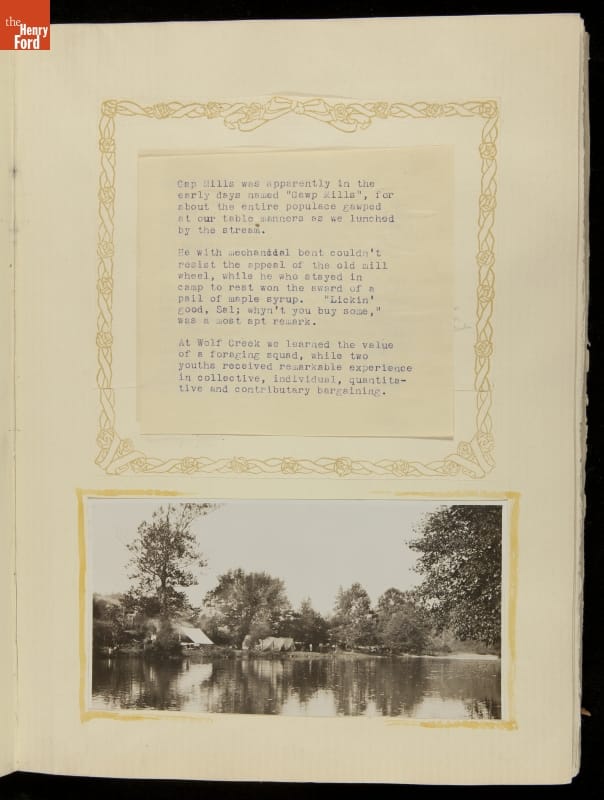 the
Henry
Ford
Cap Mills was apparently in the
early days named "Gawp Mills", for
about the entire populace gawped
at our table manners as we lunched
by the stream.
He with mechanical bent couldn't
resist the appeal of the old mill
wheel, while he who stayed in
camp to rest won the award of a
pail of maple syrup. "Lickin'
good, Sal; whyn't you buy some,"
was a most apt remark.
At Wolf Creek we learned the value
of a foraging squad, while two
youths received remarkable experience
in collective, individual, quantita-
tive and contributary bargaining.